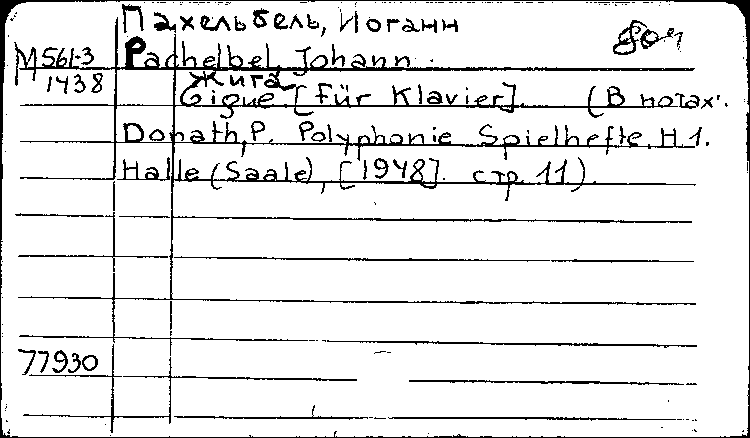 Пахельбель, Иоганн
М 561-3 Pachelbel, Johann.
1438 Жига
Gigue. [für Klavier]. (В нотах:
Donath, P. Polyphonie Spielhefte. H 1.
Halle (Saale), [1948]. стр. 11).
77930